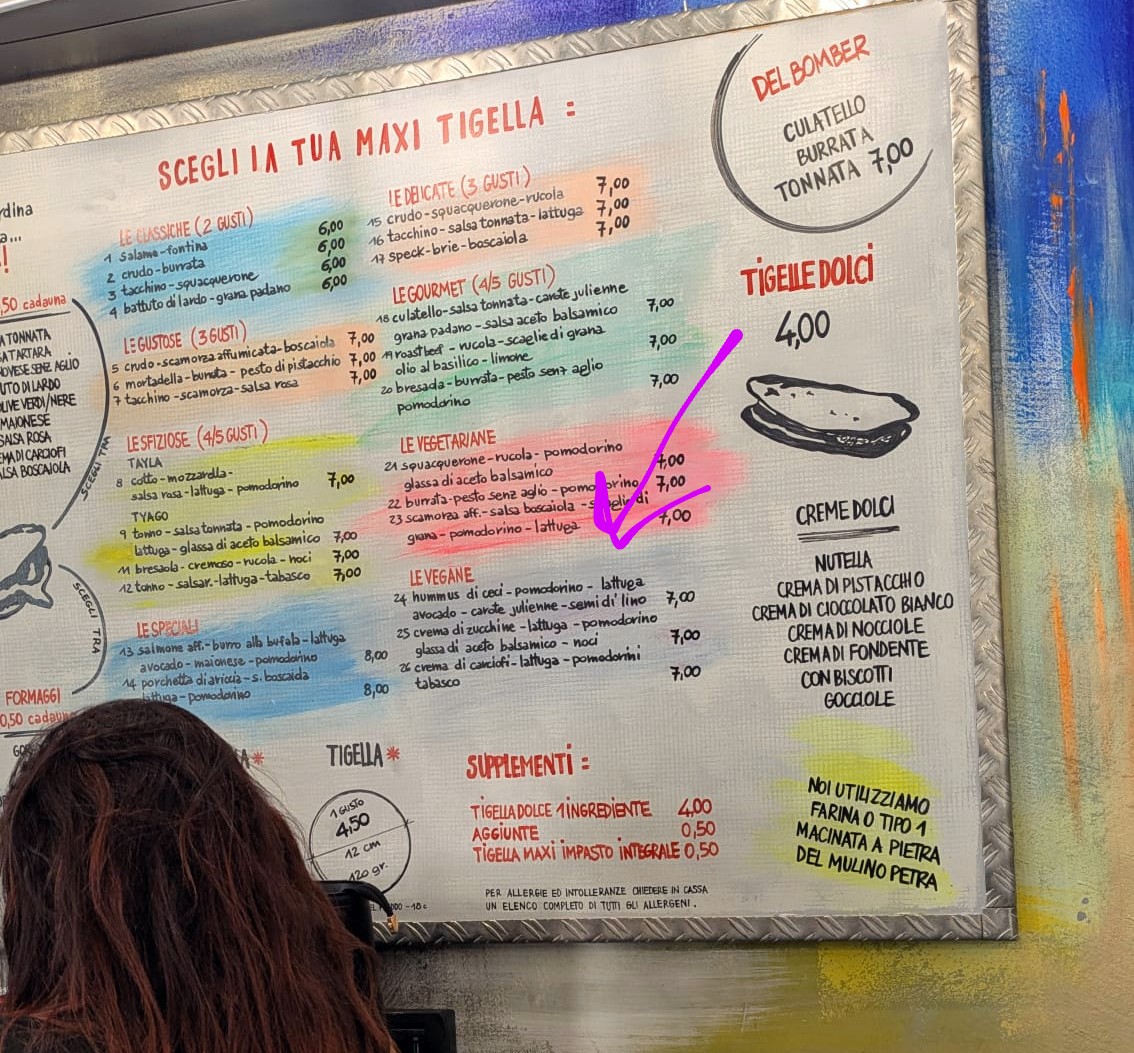 SCEGLI LA TUA MAXI TIGELLA :
rdina
a...
!
,50 cadauna
A TONNATA
SA TARTARA
NOVESE SENZ AGLIO
UTO DI LARDO
LIVE VERDI/NERE
MAIONESE
SALSA ROSA
EMA DI CARCIOFI
LSA BOSCAIOLA
SCEGLI TRA
SCEGLI TRA
FORMAGGI
0,50 cadaun
LE CLASSICHE (2 GUSTI)
1 salame-fontina 6,00
2 crudo-burrata 6,00
3 tacchino-squacquerone 6,00
4 battuto di lardo-grana padano 6,00
LE GUSTOSE (3 GUSTI)
5 crudo-scamorza affumicata-boscaiola 7,00
6 mortadella-burrata-pesto di pistacchio 7,00
7 tacchino-scamorza-salsa rosa 7,00
LE SFIZIOSE (4/5 GUSTI)
TAYLA
8 cotto-mozzarella-
salsa rosa-lattuga-pomodorino 7,00
TYAGO
9 tonno-salsa tonnata-pomodorino
lattuga-glassa di aceto balsamico 7,00
11 bresaola-cremoso-rucola-noci 7,00
12 tonno-salsar.-lattuga-tabasco 7,00
LE SPECIALI
13 salmone aff.-burro alla bufala-lattuga
avocado-maionese-pomodorino 8,00
14 porchetta di ariccia-s. boscaiola
lattuga-pomodorino 8,00
LE DELICATE (3 GUSTI)
15 crudo-squacquerone-rucola 7,00
16 tacchino-salsa tonnata-lattuga 7,00
17 speck-brie-boscaiola 7,00
LE GOURMET (4/5 GUSTI)
18 culatello-salsa tonnata-carote julienne
grana padano-salsa aceto balsamico 7,00
19 roastbeef-rucola-scaglie di grana
olio al basilico-limone 7,00
20 bresaola-burrata-pesto senz aglio
pomodorino 7,00
LE VEGETARIANE
21 squacquerone-rucola-pomodorino
glassa di aceto balsamico 7,00
22 burrata-pesto senz aglio-pomodorino 7,00
23 scamorza aff.-salsa boscaiola-scaglie di
grana-pomodorino-lattuga 7,00
LE VEGANE
24 hummus di ceci-pomodorino-lattuga
avocado-carote julienne-semi di lino 7,00
25 crema di zucchine-lattuga-pomodorino
glassa di aceto balsamico-noci 7,00
26 crema di carciofi-lattuga-pomodorini
tabasco 7,00
DEL BOMBER
CULATELLO
BURRATA
TONNATA 7,00
TIGELLE DOLCI
4,00
CREME DOLCI
NUTELLA
CREMA DI PISTACCHIO
CREMA DI CIOCCOLATO BIANCO
CREMA DI NOCCIOLE
CREMA DI FONDENTE
CON BISCOTTI
GOCCIOLE
A*
TIGELLA*
1 GUSTO
4,50
12 cm
120 gr.
SUPPLEMENTI :
TIGELLA DOLCE 1 INGREDIENTE 4,00
AGGIUNTE 0,50
TIGELLA MAXI IMPASTO INTEGRALE 0,50
NOI UTILIZZIAMO
FARINA 0 TIPO 1
MACINATA A PIETRA
DEL MULINO PETRA
PER ALLERGIE ED INTOLLERANZE CHIEDERE IN CASSA
UN ELENCO COMPLETO DI TUTTI GLI ALLERGENI.